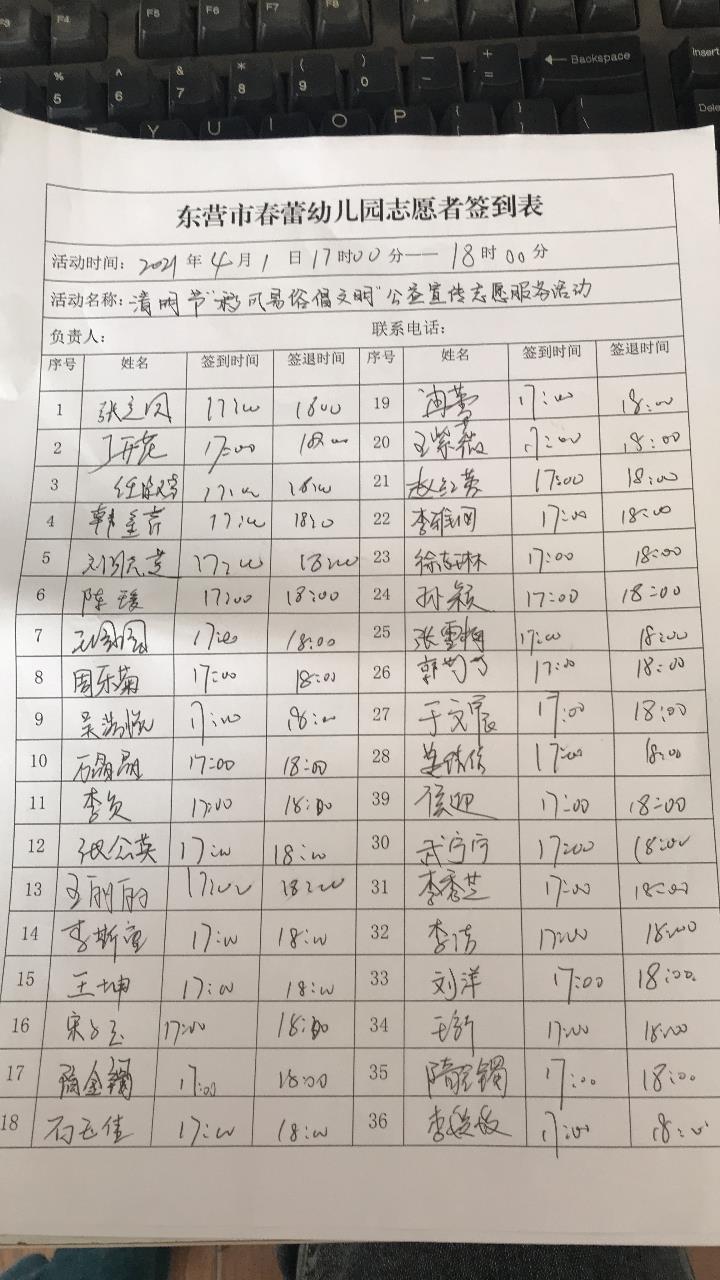 F5
F6
F7
F8
Backspace
Insert
%
5
^
6
&
7
*
8
(
9
)
0
Y
U
I
O
P
东营市春蕾幼儿园志愿者签到表
活动时间: 2021 年 4 月 1 日 17 时 00 分—— 18 时 00 分
活动名称: 清明节"移风易俗倡文明"公益宣传志愿服务活动
负责人: 联系电话:
序号 姓名 签到时间 签退时间 序号 姓名 签到时间 签退时间
1 17:00 18:00 19 17:00 18:00
2 17:00 18:00 20 王紫薇 17:00 18:00
3 17:00 18:00 21 赵红英 17:00 18:00
4 17:00 18:00 22 17:00 18:00
5 17:00 18:00 23 17:00 18:00
6 陈瑗 17:00 18:00 24 孙颖 17:00 18:00
7 17:00 18:00 25 张雪梅 17:00 18:00
8 周乐菊 17:00 18:00 26 17:00 18:00
9 17:00 18:00 27 于文宸 17:00 18:00
10 17:00 18:00 28 17:00 18:00
11 17:00 18:00 39 17:00 18:00
12 17:00 18:00 30 武宁宁 17:00 18:00
13 王丽丽 17:00 18:00 31 李秀芝 17:00 18:00
14 17:00 18:00 32 李洁 17:00 18:00
15 王坤 17:00 18:00 33 刘洋 17:00 18:00
16 17:00 18:00 34 17:00 18:00
17 17:00 18:00 35 17:00 18:00
18 石玉佳 17:00 18:00 36 17:00 18:00